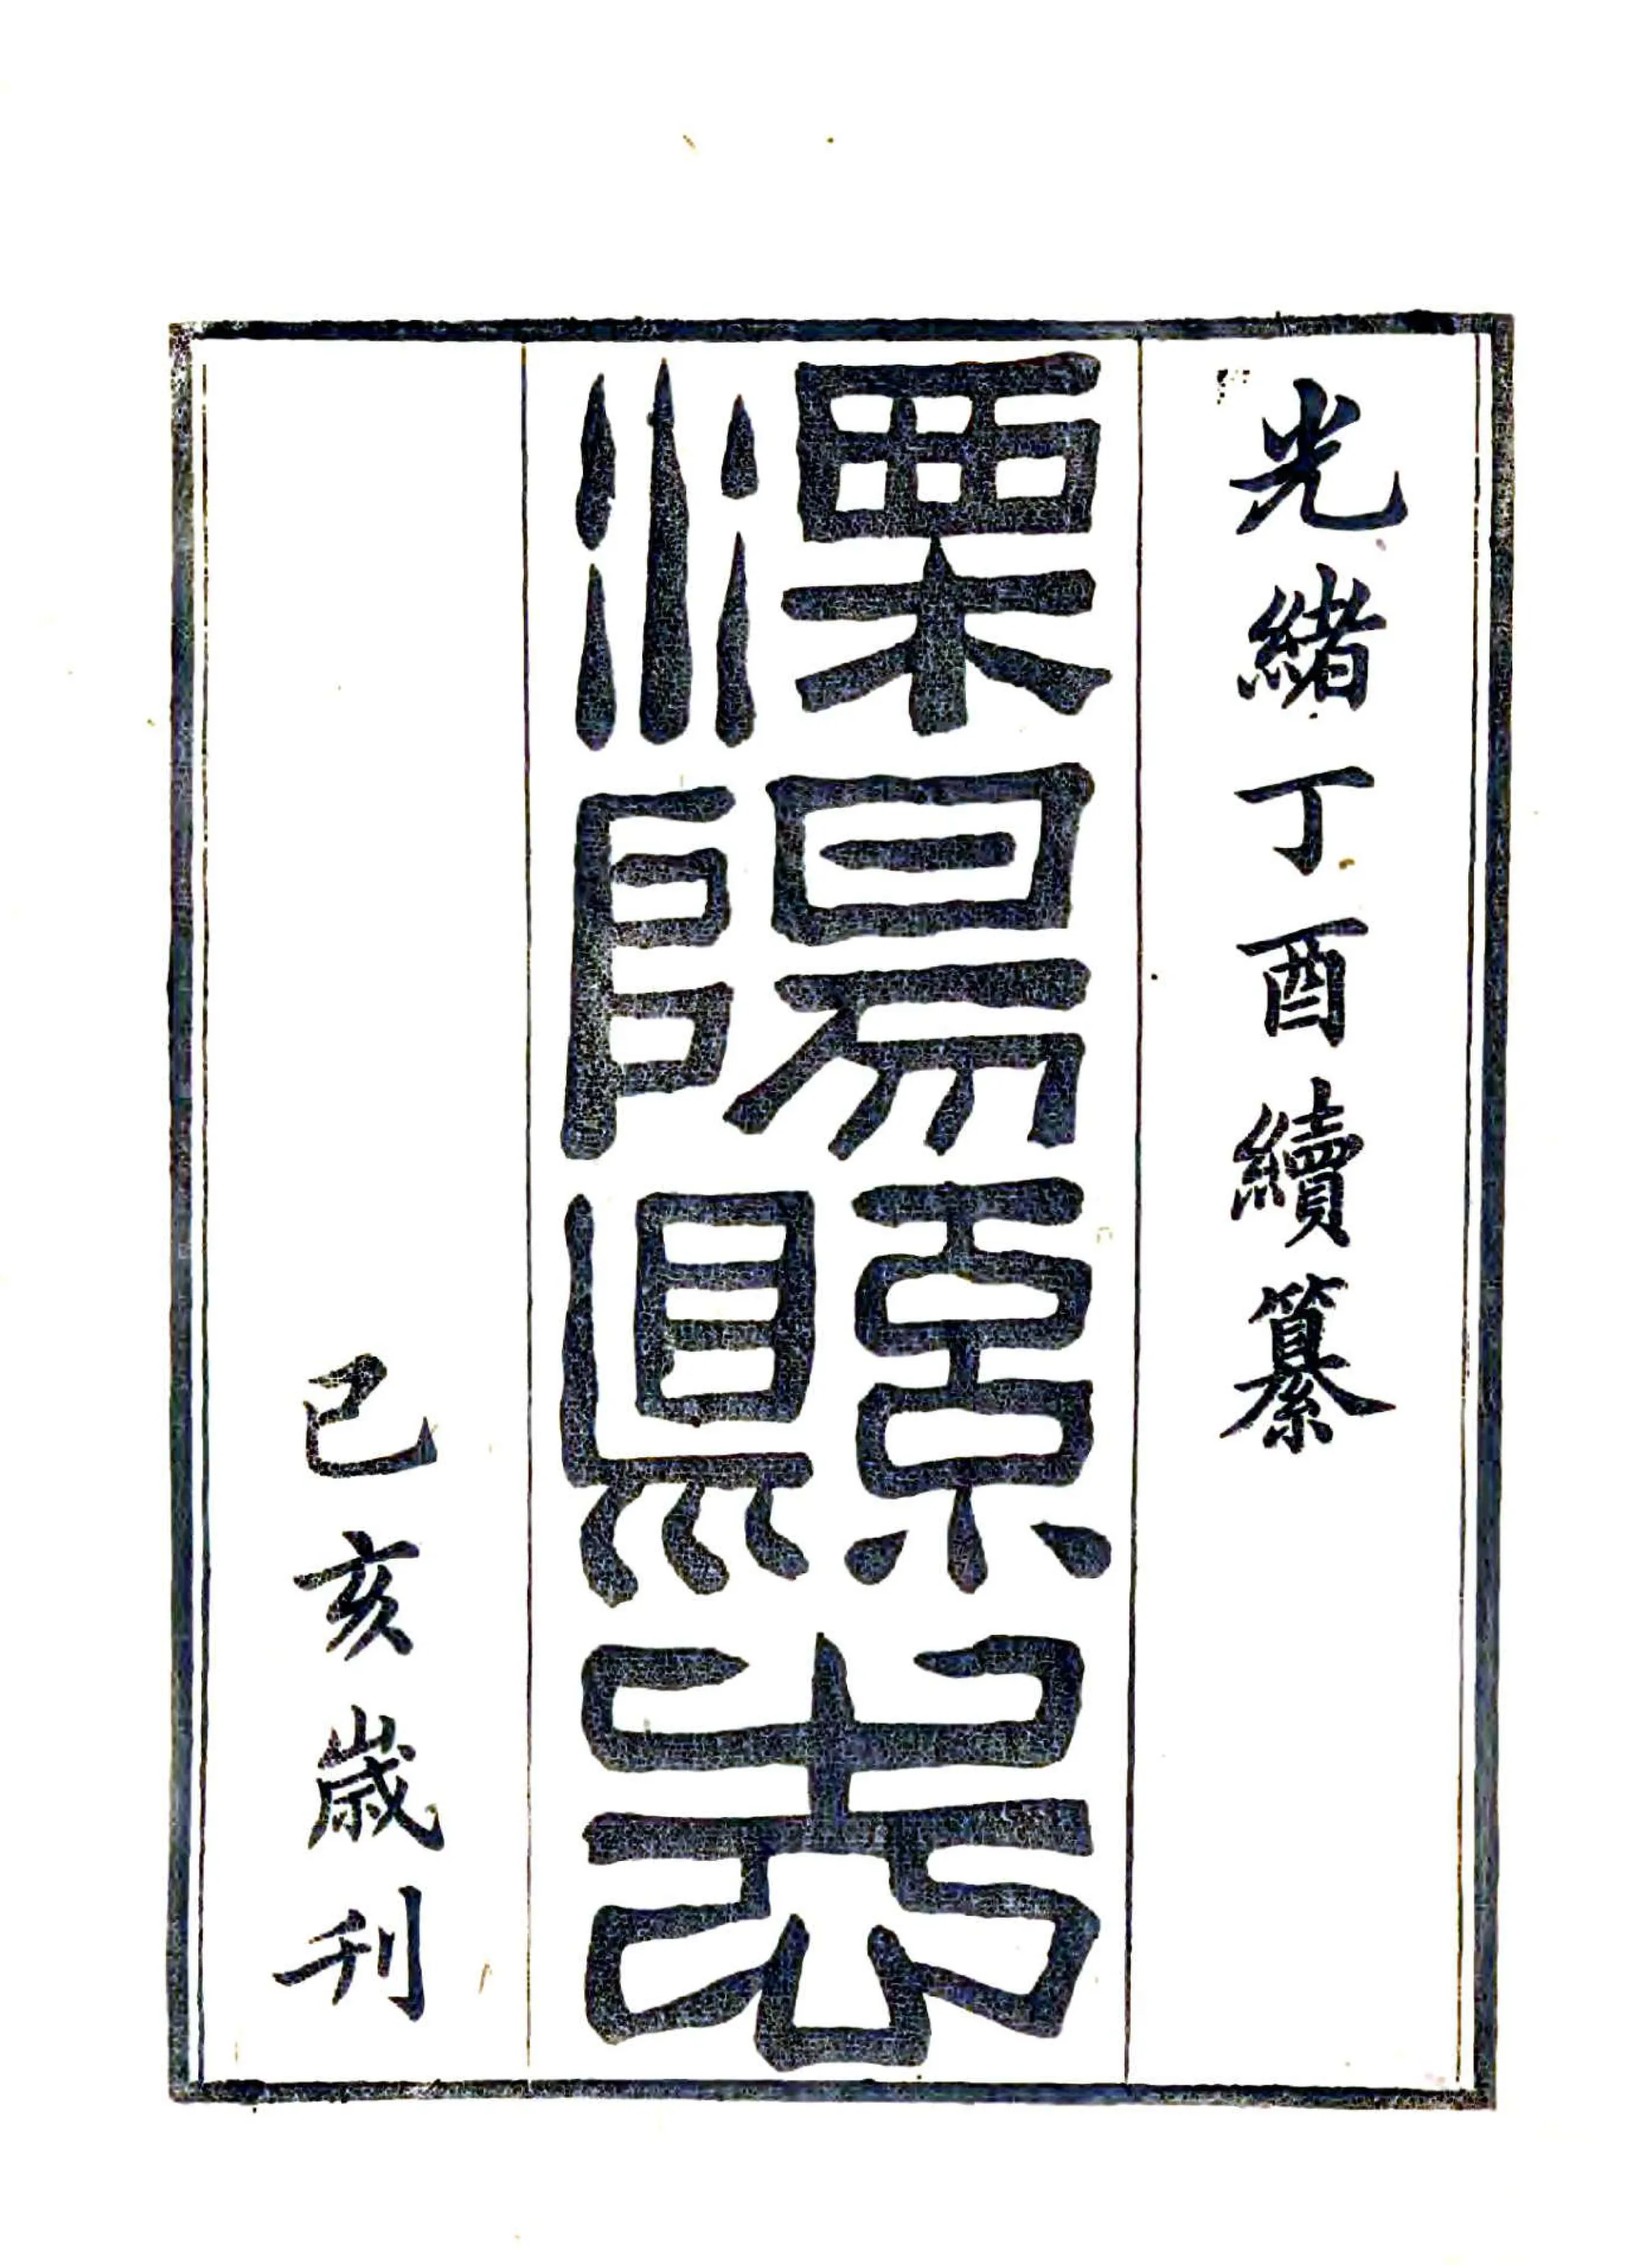 光緒丁酉續纂
溧陽縣志
己亥歲刊